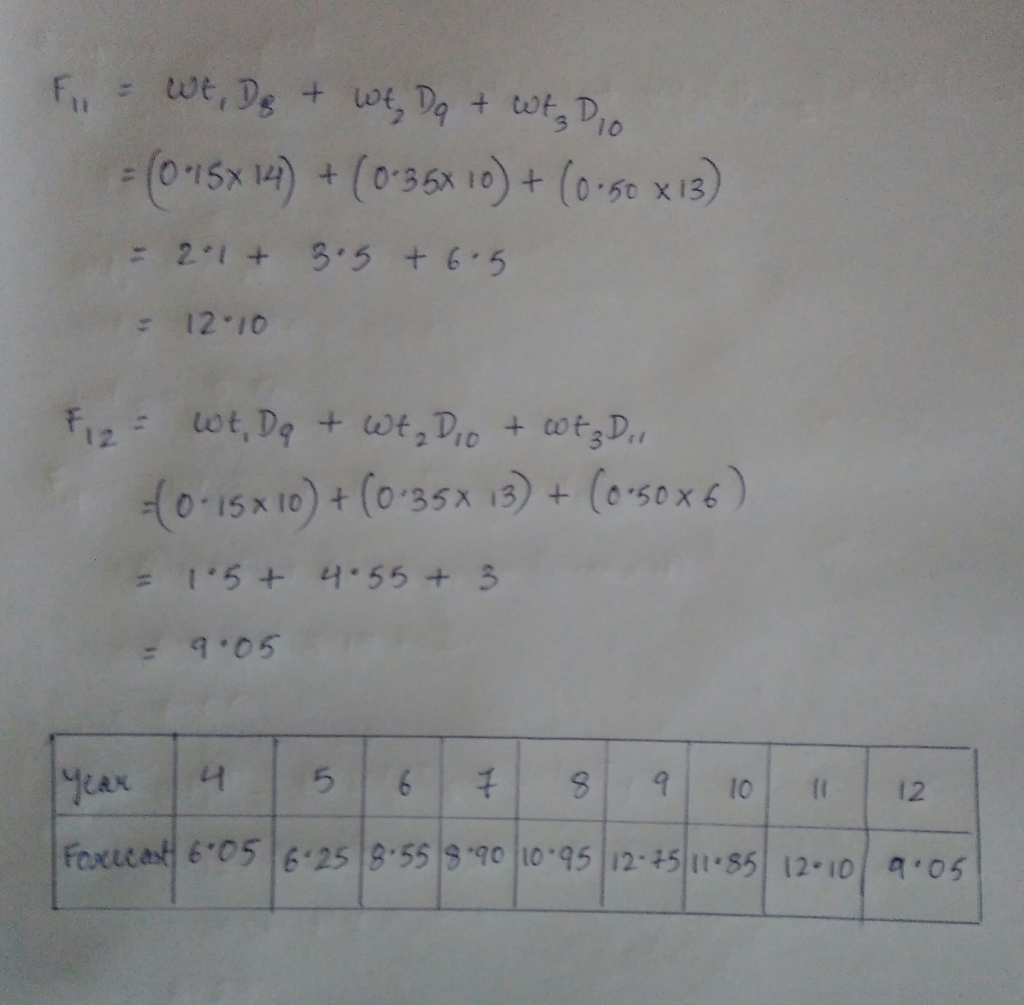 F₁₁ = wt₁ D₈ + wt₂ D₉ + wt₃ D₁₀
= (0.15x14) + (0.35x10) + (0.50 x13)
= 2.1 + 3.5 + 6.5
= 12.10
F₁₂ = wt₁ D₉ + wt₂ D₁₀ + wt₃ D₁₁
=(0.15x10) + (0.35x 13) + (0.50x6)
= 1.5 + 4.55 + 3
= 9.05
Year 4 5 6 7 8 9 10 11 12
Forecast 6.05 6.25 8.55 8.90 10.95 12.75 11.85 12.10 9.05